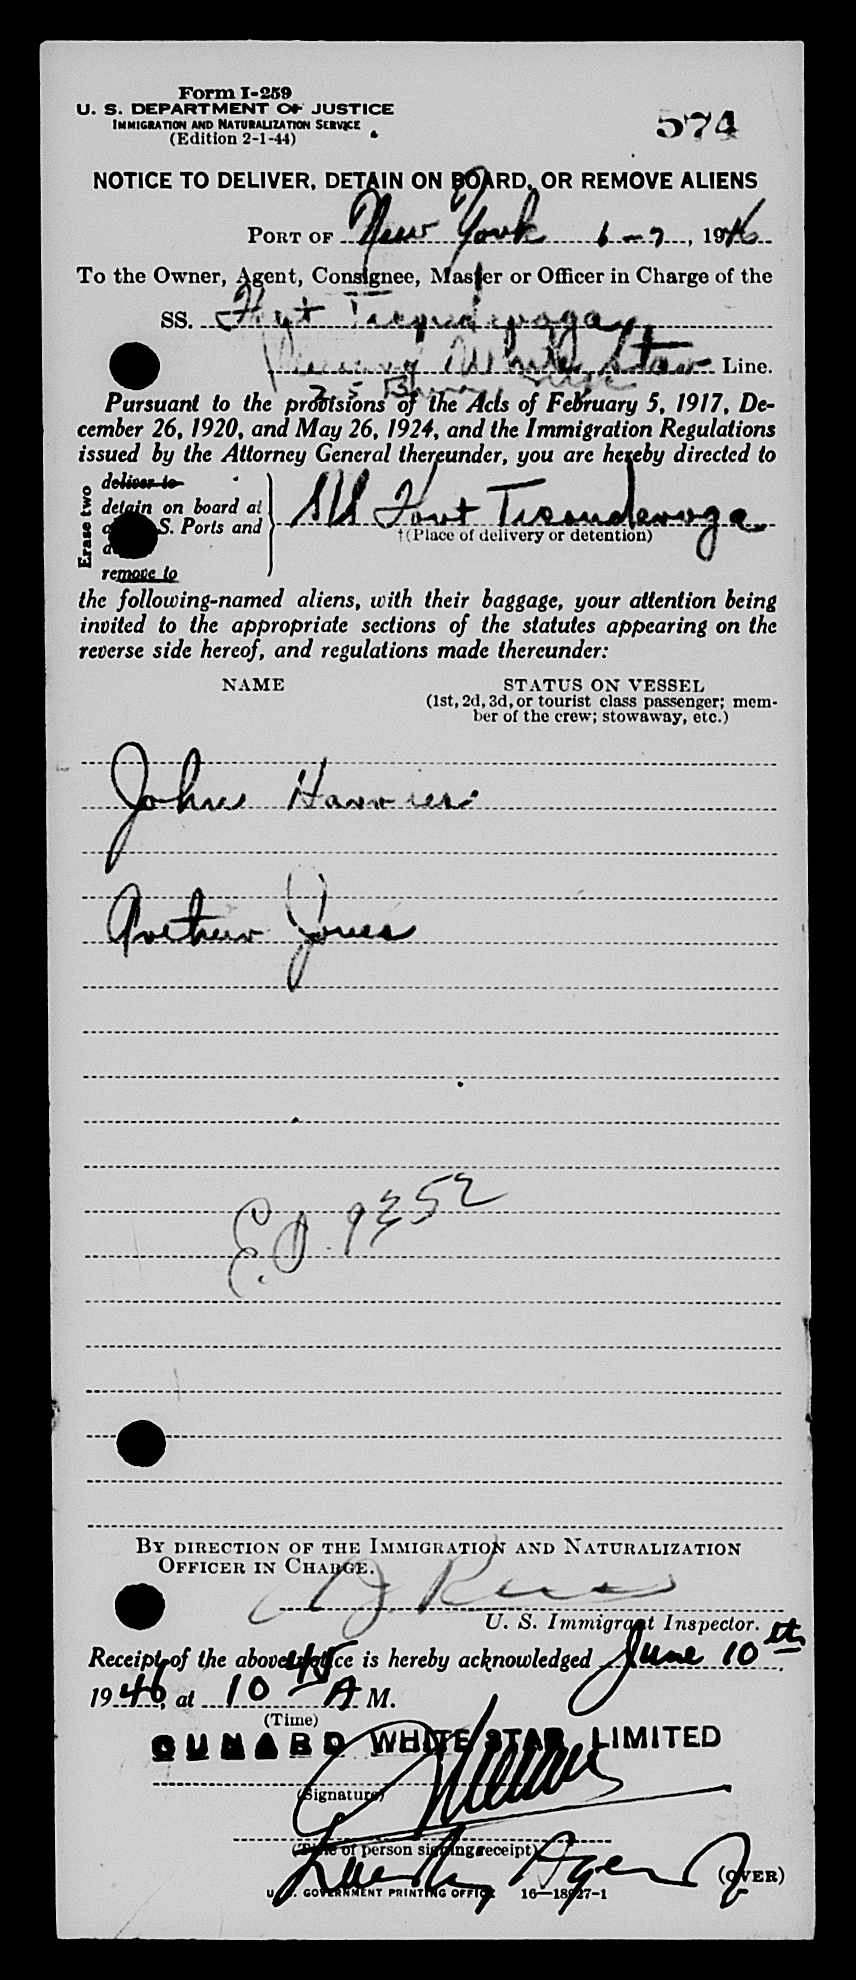 Form I-259
U. S. DEPARTMENT OF JUSTICE
IMMIGRATION AND NATURALIZATION SERVICE
(Edition 2-1-44)
574
NOTICE TO DELIVER, DETAIN ON BOARD, OR REMOVE ALIENS
PORT OF New York 6-7, 1946
To the Owner, Agent, Consignee, Master or Officer in Charge of the
SS. Fort Ticonderoga
Cunard White Star Line.
25 Bway
Pursuant to the provisions of the Acts of February 5, 1917, De-
cember 26, 1920, and May 26, 1924, and the Immigration Regulations
issued by the Attorney General thereunder, you are hereby directed to
Erase two
deliver to
detain on board at
S. Ports and
remove to
SS Fort Ticonderoga
†(Place of delivery or detention)
the following-named aliens, with their baggage, your attention being
invited to the appropriate sections of the statutes appearing on the
reverse side hereof, and regulations made thereunder:
NAME STATUS ON VESSEL
(1st, 2d, 3d, or tourist class passenger; mem-
ber of the crew; stowaway, etc.)
John
Arthur Jones
BY DIRECTION OF THE IMMIGRATION AND NATURALIZATION
OFFICER IN CHARGE.
U. S. Immigrant Inspector.
Receipt of the above notice is hereby acknowledged June 10th
1946, at 10 45 A M.
(Time)
CUNARD WHITE STAR LIMITED
(Signature)
(Title of person signing receipt)
(OVER)
U. S. GOVERNMENT PRINTING OFFICE 16—18927-1